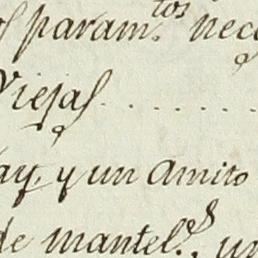 param.tos nec
viejas . . . . . . .
ay, y un amito
de mantel.es, un